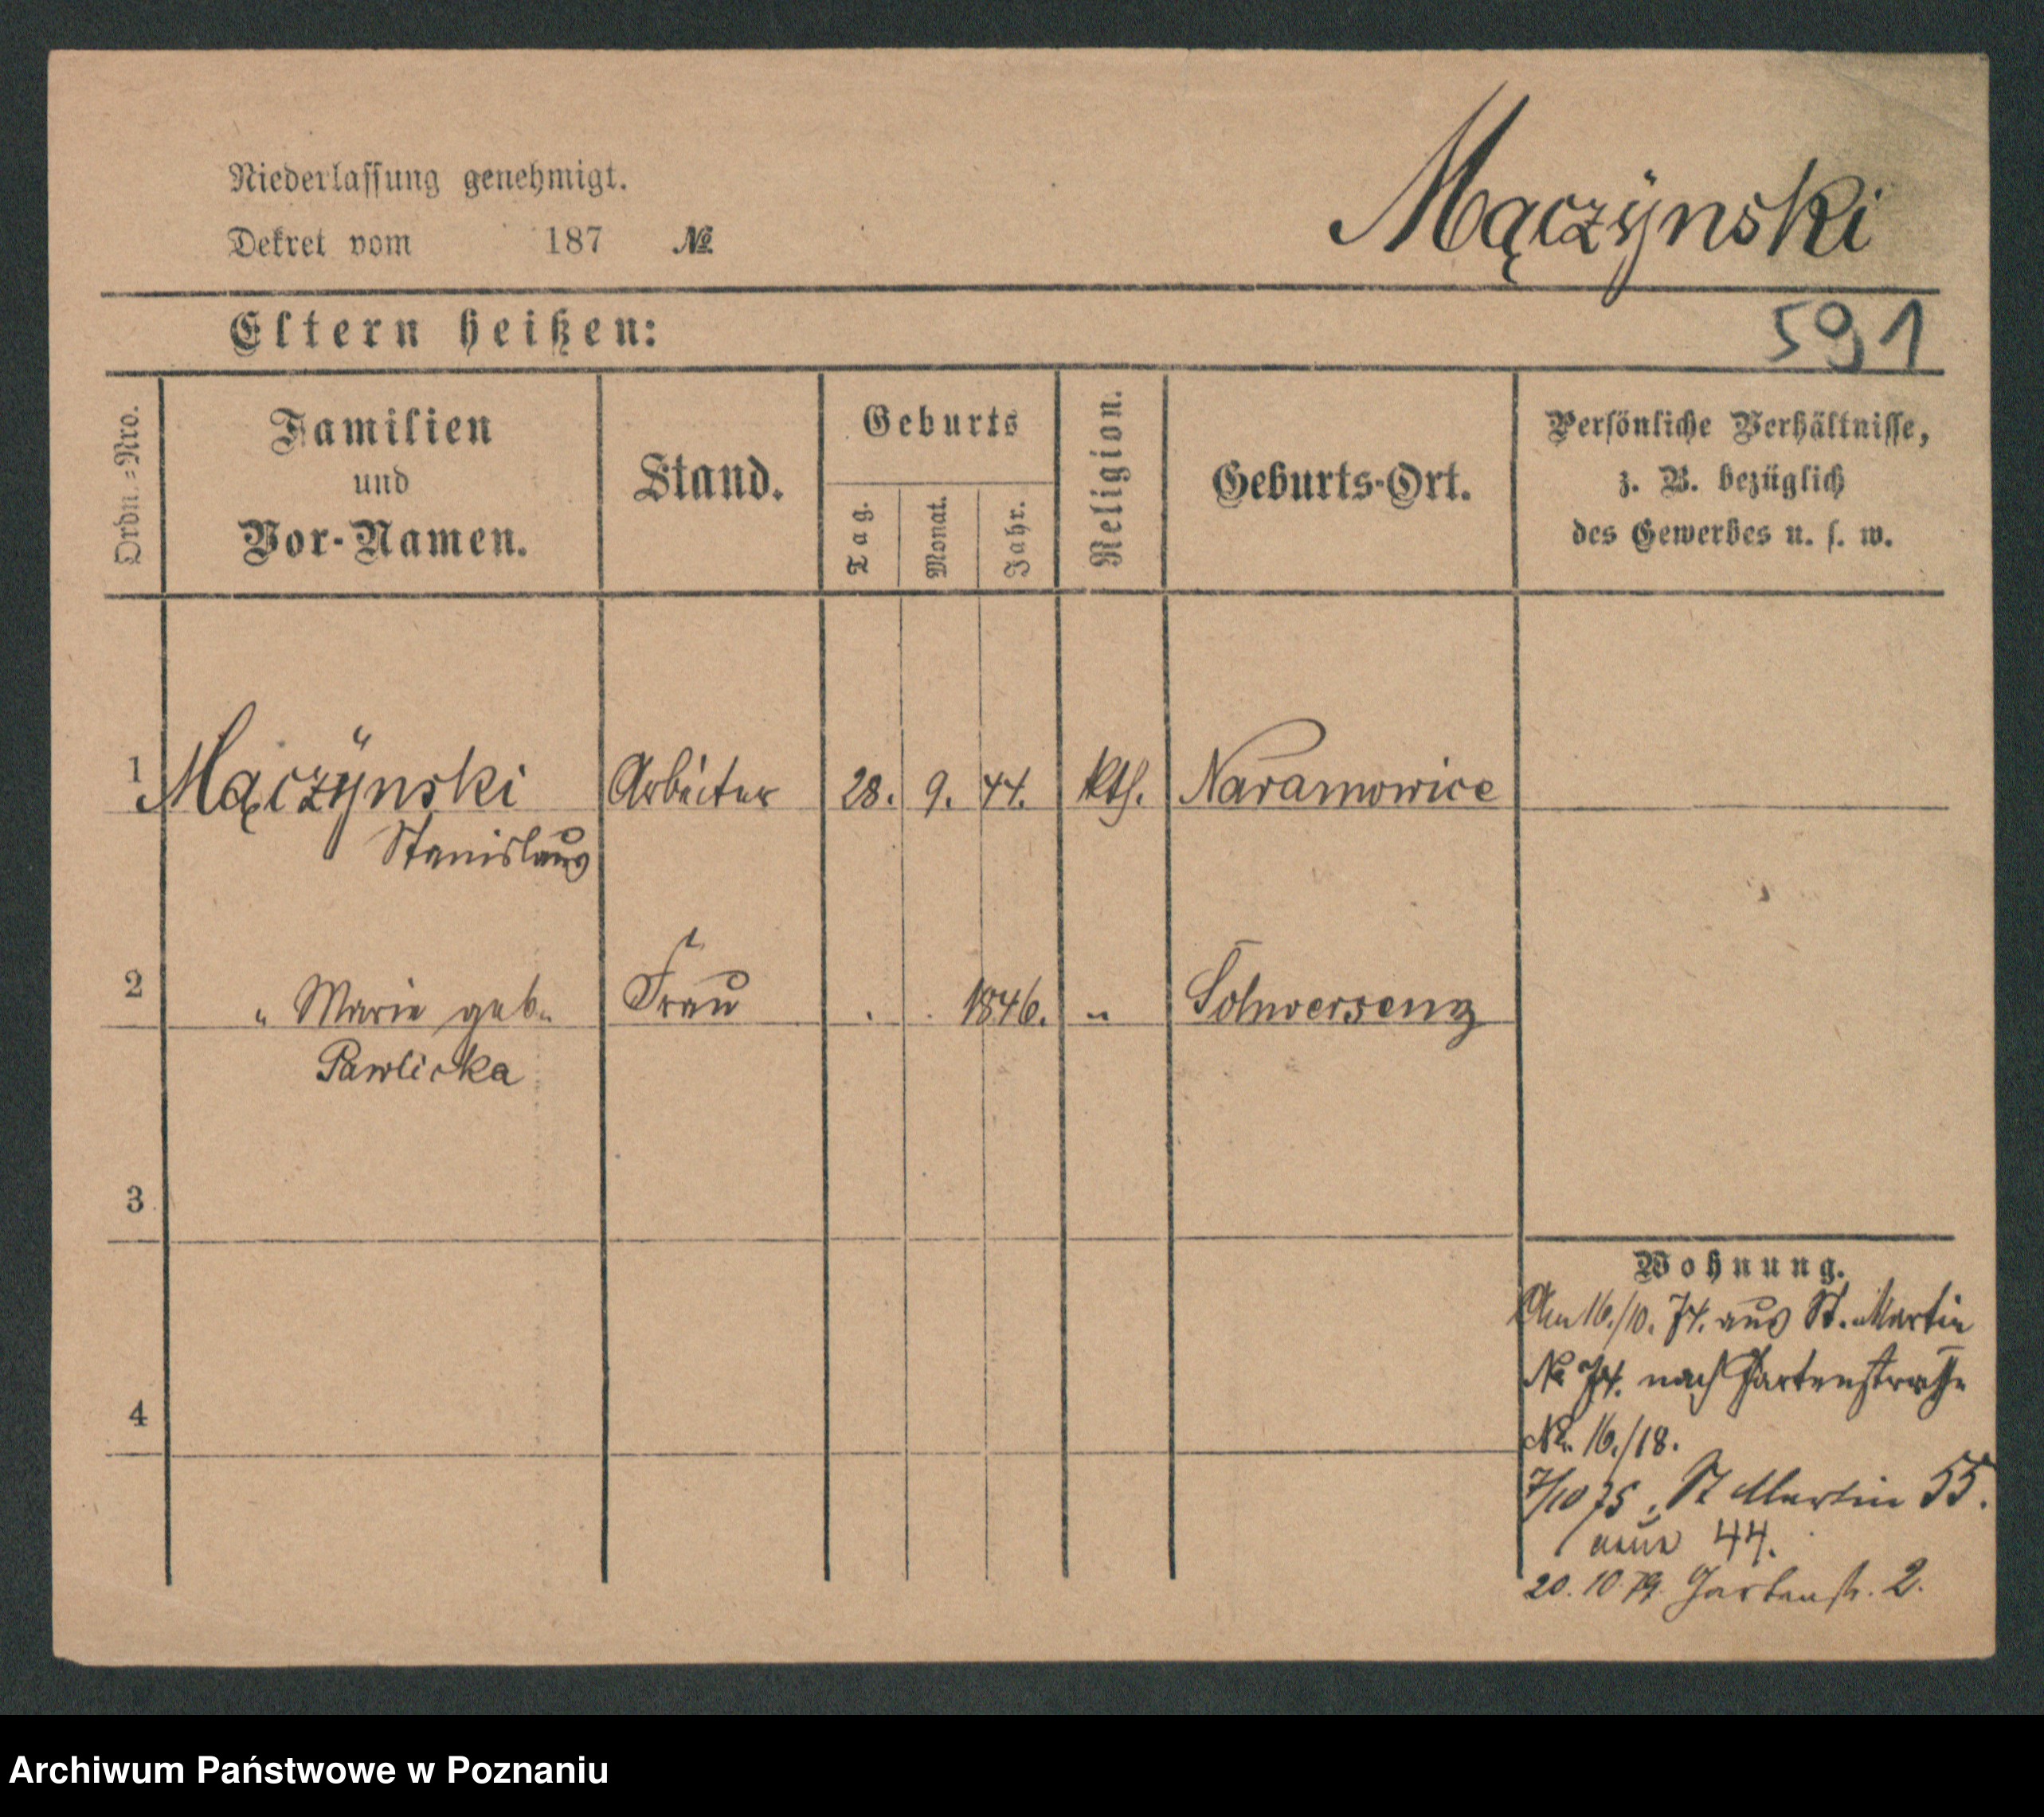 Niederlassung genehmigt.
Dekret vom 187 №
Mączÿnski
Eltern heißen:
591
Ordn.=Nro.
Familien
und
Vor-Namen.
Stand.
Geburts
Tag.
Monat.
Jahr.
Religion.
Geburts-Ort.
Persönliche Verhältnisse,
z. B. bezüglich
des Gewerbes u. s. w.
1 Mączÿnski Arbeiter 28. 9. 44. kth. Naramowice
Stanislaus
2 " Marie geb. Frau . . 1846. " Schwersenz
Pawlicka
3
4
Wohnung.
Am 16./10. 74. aus St. Martin
No 74. nach Gartenstraße
No. 16./18.
7/10 75. St Martin 55.
neue 44.
20. 10 79. Gartenstr. 2.
Archiwum Państwowe w Poznaniu